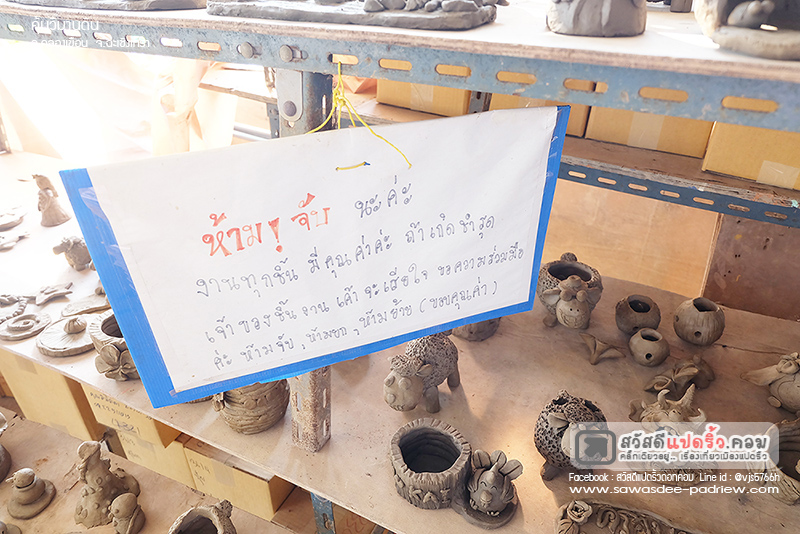 คีนวิมานดิน
อ.คลองเขื่อน จ.ฉะเชิงเทรา
ห้าม! จับ นะค่ะ
งานทุกชิ้น มีคุณค่าค่ะ ถ้าเกิดชำรุด
เจ้าของชิ้นงาน เค้าจะเสียใจ ขอความร่วมมือ
ค่ะ ห้ามจับ, ห้ามยก, ห้ามย้าย (ขอบคุณค่ะ)
สวัสดีแปดริ้ว.คอม
คลิ๊กเดียวอยู่.. เรื่องเที่ยวเมืองแปดริ้ว
Facebook : สวัสดีแปดริ้วดอทคอม Line id : @vjs5766h
www.sawasdee-padriew.com